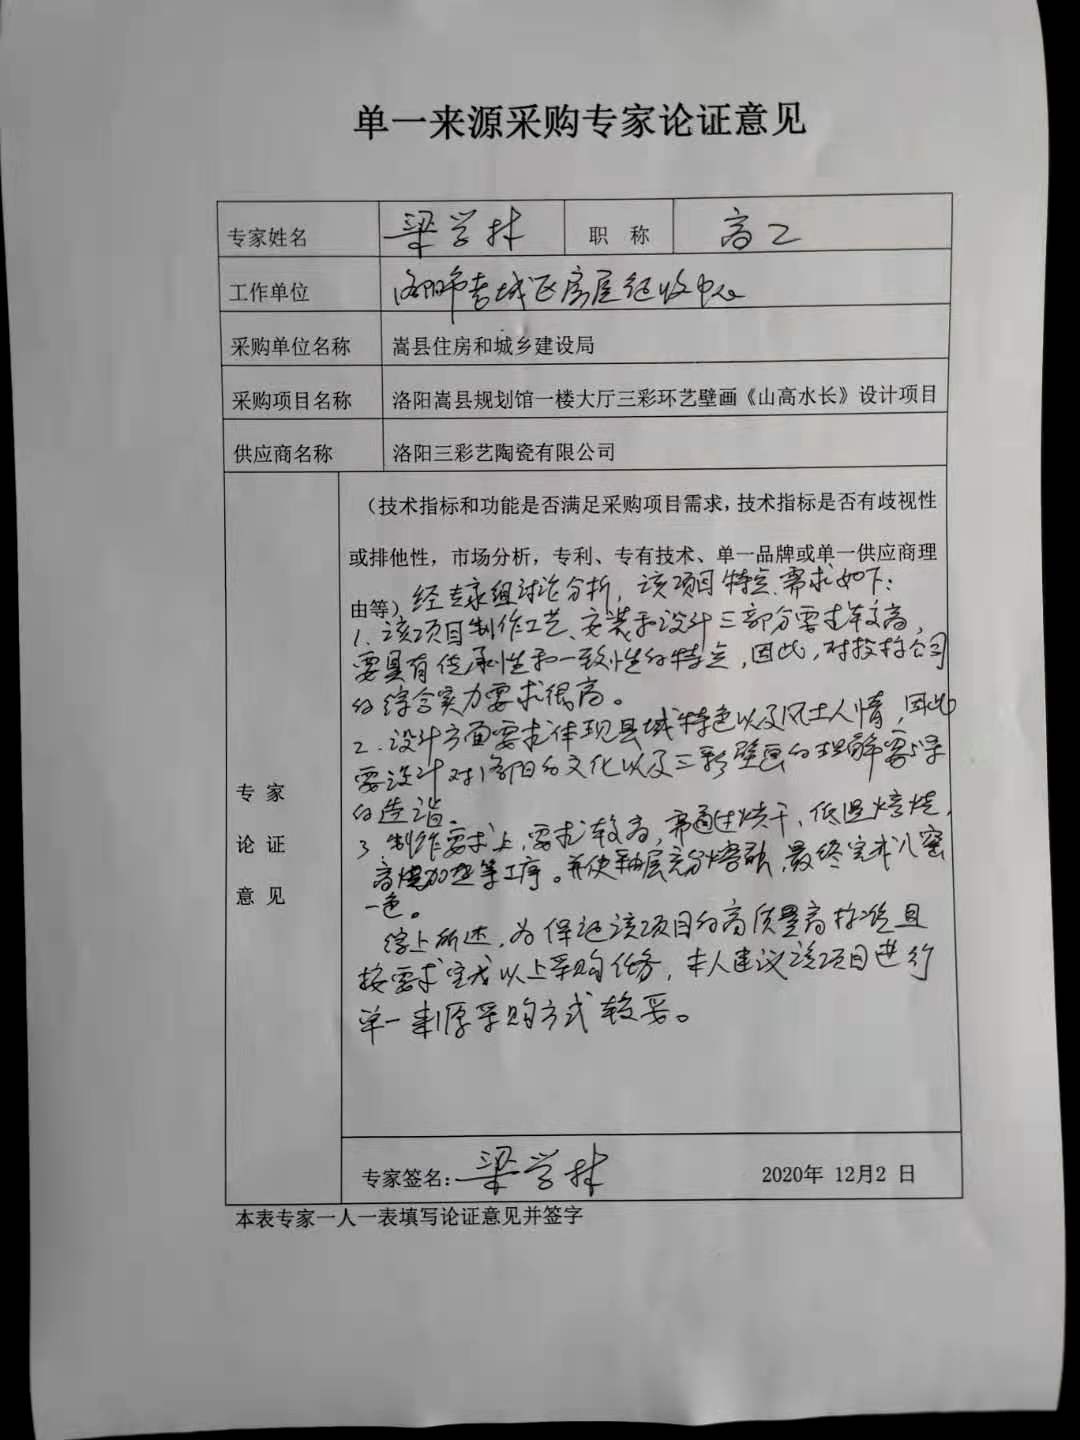 单一来源采购专家论证意见
专家姓名 梁学林 职 称 高工
工作单位 洛阳市老城区房屋征收中心
采购单位名称 嵩县住房和城乡建设局
采购项目名称 洛阳嵩县规划馆一楼大厅三彩环艺壁画《山高水长》设计项目
供应商名称 洛阳三彩艺陶瓷有限公司
(技术指标和功能是否满足采购项目需求，技术指标是否有歧视性
或排他性，市场分析，专利、专有技术、单一品牌或单一供应商理
由等) 经专家组讨论分析，该项目特点、需求如下：
1、该项目制作工艺、安装和设计三部分要求较高，
要具有传承性和一致性的特点，因此，对投标公司
的综合实力要求很高。
2、设计方面要求体现县域特色以及风土人情，因此
要设计对洛阳的文化以及三彩壁画的理解要深
的造诣。
3 制作要求上，要求较高，需通过烘干、低温焙烧，
高烧加
等工序。并使釉层充分熔融，最终完成八窑
一色。
综上所述，为保证该项目的高质量高标准且
按要求完成以上采购任务，本人建议该项目进行
单一来源采购方式较妥。
专 家
论 证
意 见
专家签名：梁学林 2020年 12月2 日
本表专家一人一表填写论证意见并签字